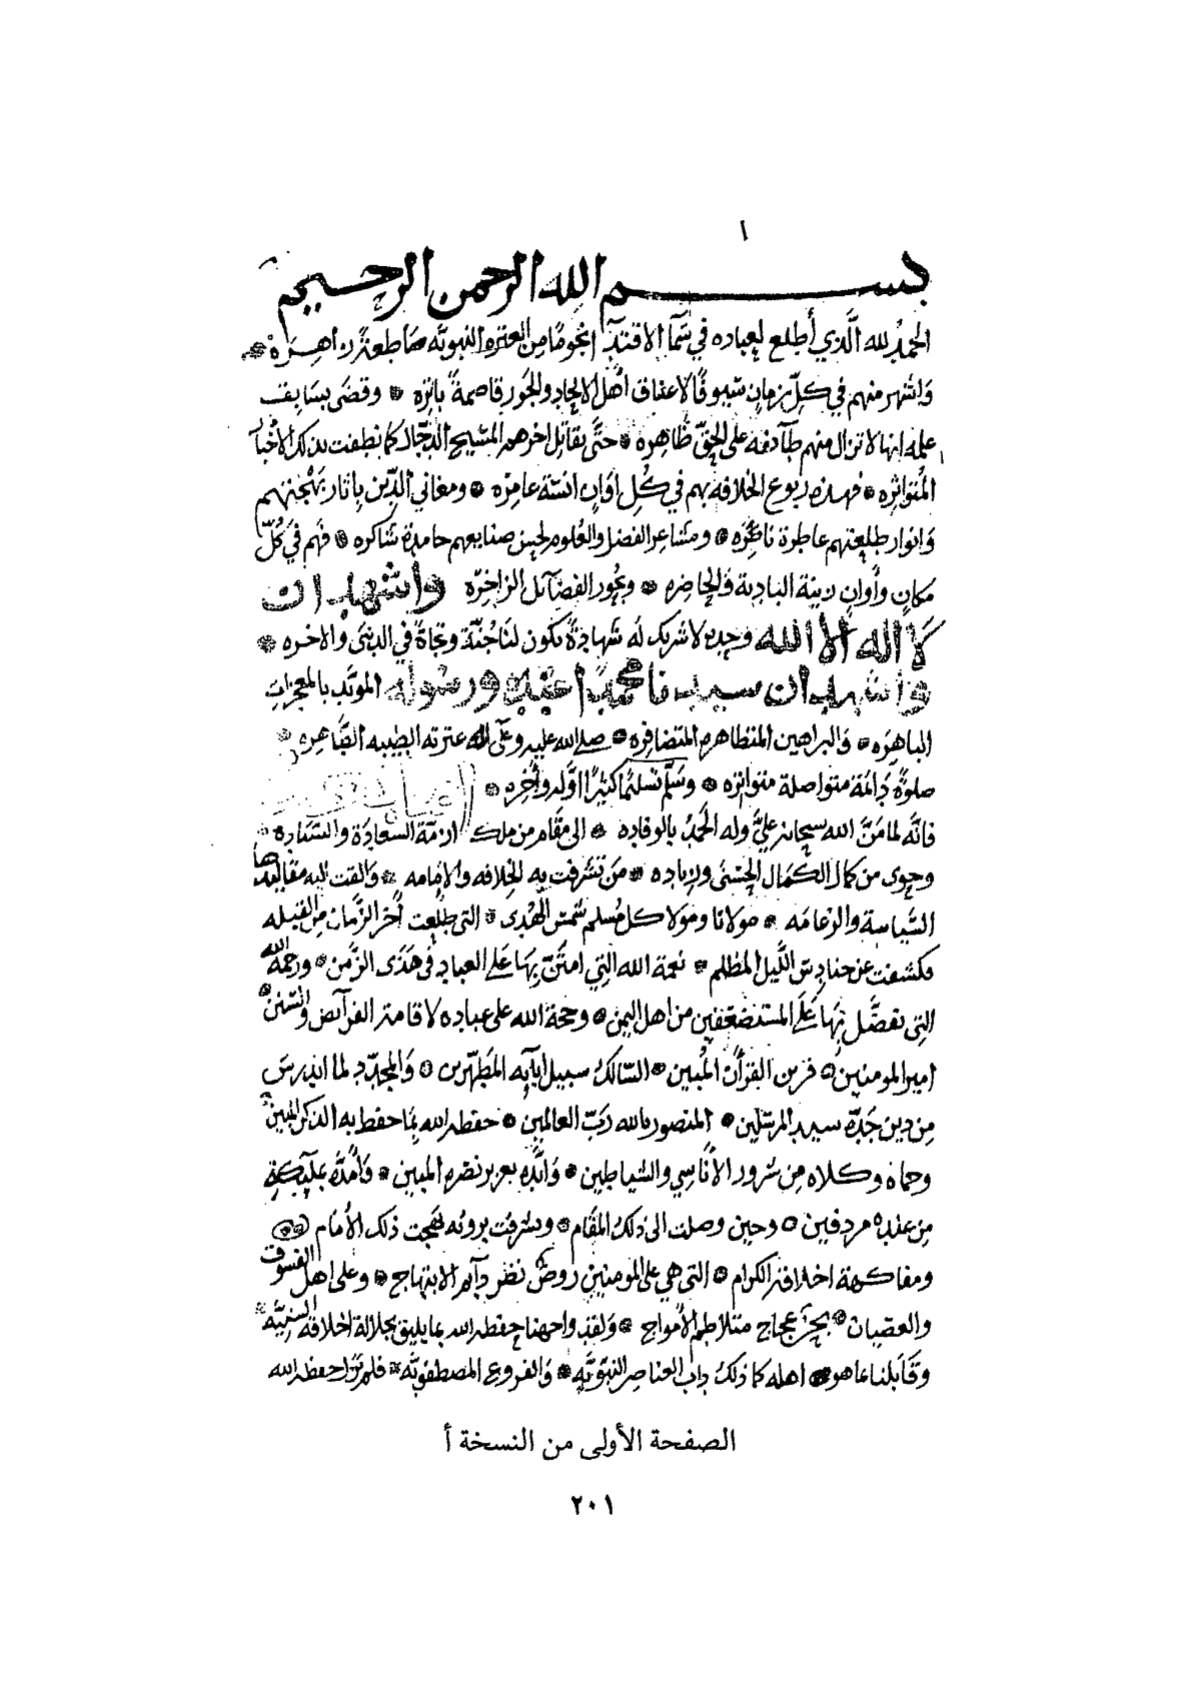 ١
بسم الله الرحمن الرحيم
الحمد لله الَّذي أطلع لعباده في سَمآ الاقتدآ نجُومًا من العتره النبويّه سَاطعةً زاهِرَه
وَاشهر منهم في كلِّ زمانٍ سُيوفًا لاعناق أهْل الالحاد والجَور قاصمةً باتِرَه وقضَى بسَابق
علمه انها لا تزال منهم طآئفه على الحقِّ ظاهِره حتَّى يقاتل اخرهم المسّيح الدّجّال كما نطقت بذلك الأخْبار
المُتواتِره فهذه ربوع الخلافه بهم في كُلِ اوَانٍ انسَة عامِرَه ومغاني الدِّين بِاثار بَهْجتِهم
وَانوار طلعتهم عاطرة ناظِرَه ومشاعر الفضل والعُلوم لحسن صنايعهم حامدة شاكره فهُم في كُلّ
مكانٍ وأوانٍ زينة البادية والحاضره وبحُور الفضآئل الزاخِرَه واشهد ان
لَا اله الا الله وحده لا شريك له شهادةً تكون لنَا جُنّة ونجاةً في الدنيَى والاخره
واشهد ان سيدنا محمدًا عبده ورسوله المؤيّد بالمعجزاتِ
الباهرَه وَالبراهين المتظاهره المتضافِره صلى الله عليه وعَلَى اله عترته الطيبه الطَّاهره
صلوةً دَائمَة متواصلة متواتره وسَلّم تسلِيمًا كثيرًا اوَّله وآخِره
فانّه لما مَنَّ الله سبحانه علَيَّ وله الحَمدُ بالوفاده الى مقَام من ملك ازمّة السعادَة والسّياده
وحوى من كمال الكمَال الحُسْنى وزياده مَن تشرفت به الخِلافه والإمامه وَالقت اليه مقاليدها
السِّياسة والزعامَه مولانا ومَولا كل مُسلم شمس الهُدى التي طلعت آخر الزَّمان من القبله
فكشفت عن حنادِس اللَّيل المظلم نعمة الله التي امتَنّ بهَا عَلى العباد في هَذى الزَّمن ورحمة الله
التِى تفضَّل بِهَا عَلَى المستضعَفين من اهل اليمن وحجة الله على عباده لاقامة الفرآئض والسّنن
امير المومنين قرين القرآن المُبين السّالك سبيل ابآئِه المطَهّرين وَالمجدّد لما اندرسَ
مِن دين جَدّه سيد المرسَلين المنصور بالله رَبّ العالمين حفظه الله بِمَا حفظ به الذكر المبين
وحماه وكلاه مِن شرور الأنَاسِي والشياطين وَايّده بعزيز نصره المبين وَأمَدّه بملآئكةٍ
مِن عنده مردفين وحين وصلت الى ذلك المقَام وتشرفت برويه بهجت ذلك الأمَام
ومفاكهة اخلاقه الكرام التى هي على المومنين روضٌ نظر دآيم الابتهاج وعلى اهل الفسُوق
والعصيان بحرٌ عجاج متلاطم الأمواج وَلقد واجهنا حفظه الله بما يليق بجلالة اخلاقه السنِيّه
وقَابلنا بما هو اهله كما ذلك داب العناصِر النبَوِيَّه وَالفروع المصطفويّه فلم نزَل حفظه الله
الصفحة الأولى من النسخة أ
٢٠١